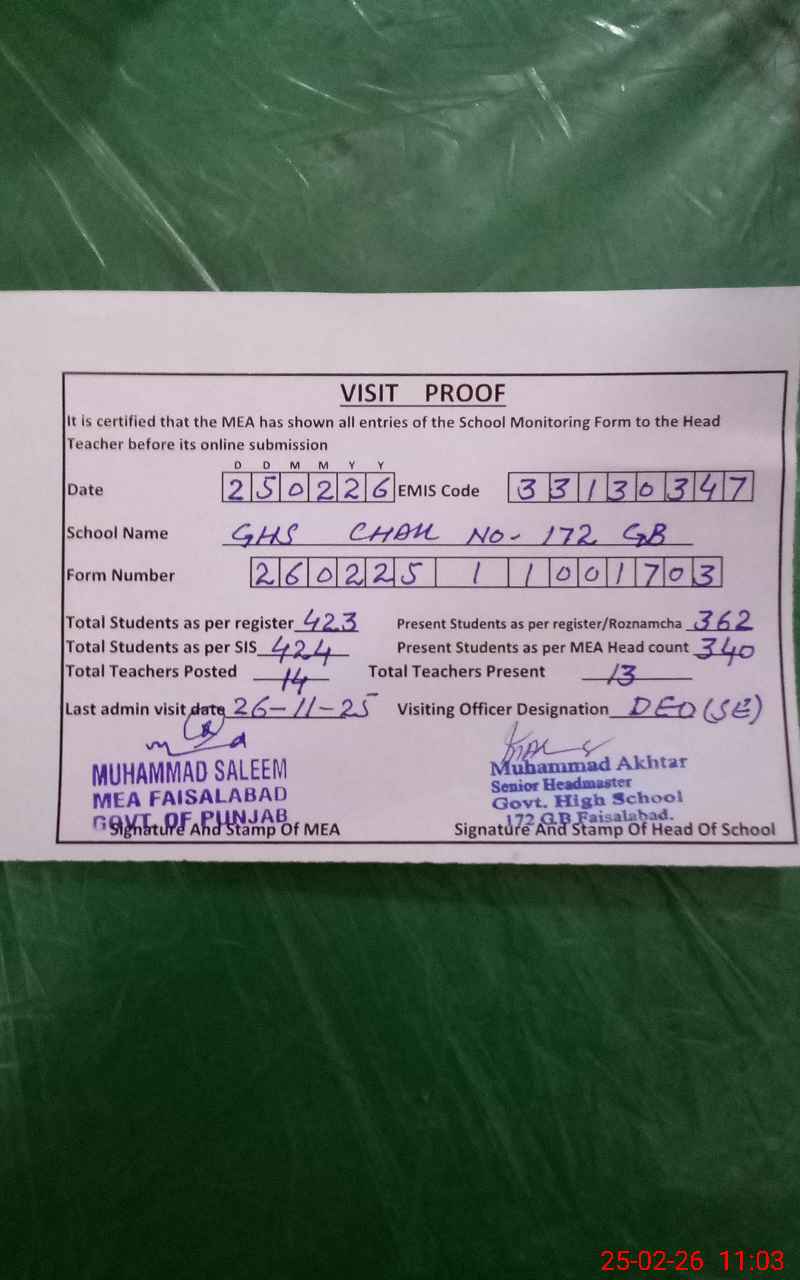 VISIT PROOF
It is certified that the MEA has shown all entries of the School Monitoring Form to the Head
Teacher before its online submission
D D M M Y Y
Date 250226 EMIS Code 33130347
School Name GHS CHAK NO- 172 GB
Form Number 260225 1 1001703
Total Students as per register 423 Present Students as per register/Roznamcha 362
Total Students as per SIS 424 Present Students as per MEA Head count 340
Total Teachers Posted 14 Total Teachers Present 13
Last admin visit date 26-11-25 Visiting Officer Designation DEO (SE)
MUHAMMAD SALEEM
MEA FAISALABAD
GOVT. OF PUNJAB
Signature And Stamp Of MEA
Muhammad Akhtar
Senior Headmaster
Govt. High School
172 G.B Faisalabad.
Signature And Stamp Of Head Of School
25-02-26 11:03